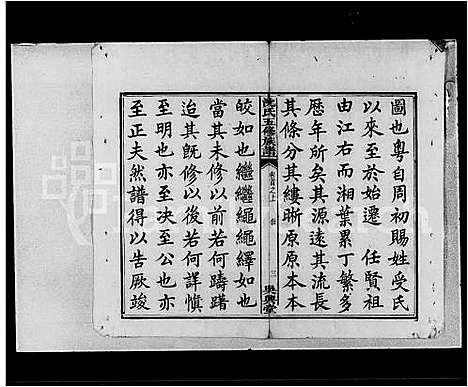 圖也粵自周初賜姓受氏
以來至於始遷　任賢祖
由江右而湘葉累丁繁多
歷年所矣其源遠其流長
其條分其縷晰原原本本
沈氏五修族譜
卷首之上
三
吳興堂
皎如也繼繼繩繩繹如也
當其未修以前若何躊躇
迨其既修以後若何詳慎
至明也亦至决至公也亦
至正夫然譜得以告厥竣